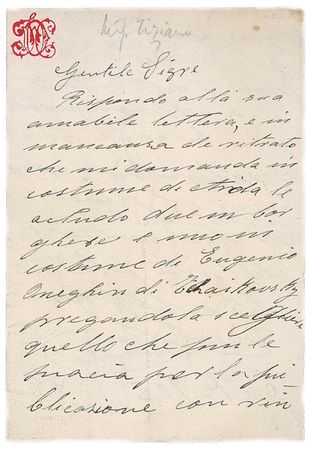 Gentile Sigre
Rispondo alla sua
amabile lettera, e in
mancanza di ritratto
che mi domanda in
costume di Aida le
acludo due in bor
ghese e uno in
costume de Eugenio
Oneghin di Tchaikovsky
pregandola scegliere
quello che piu le
piacia per la pu
blicazione con rin